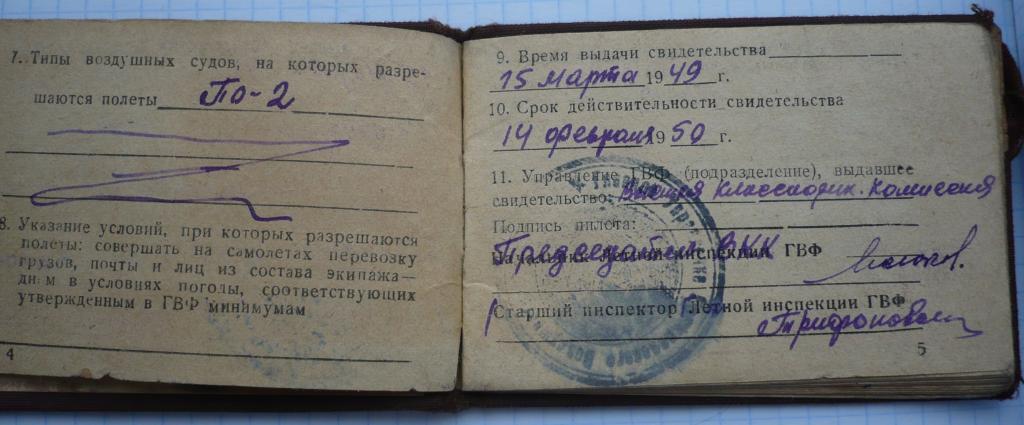 7. Типы воздушных судов, на которых разре-
шаются полеты По-2
8. Указание условий, при которых разрешаются
полеты: совершать на самолетах перевозку
грузов, почты и лиц из состава экипажа-
ди м в условиях погоды, соответствующих
утвержденным в ГВФ минимумам
4
9. Время выдачи свидетельства
15 марта 1949 г.
10. Срок действительности свидетельства
14 февраля 1950 г.
11. Управление ГВФ (подразделение), выдавшее
свидетельство: Высшая Классифик. Комиссия
Подпись пилота:
Председатель ВКК
Начальник Летной инспекции ГВФ
Старший инспектор Летной инспекции ГВФ
5